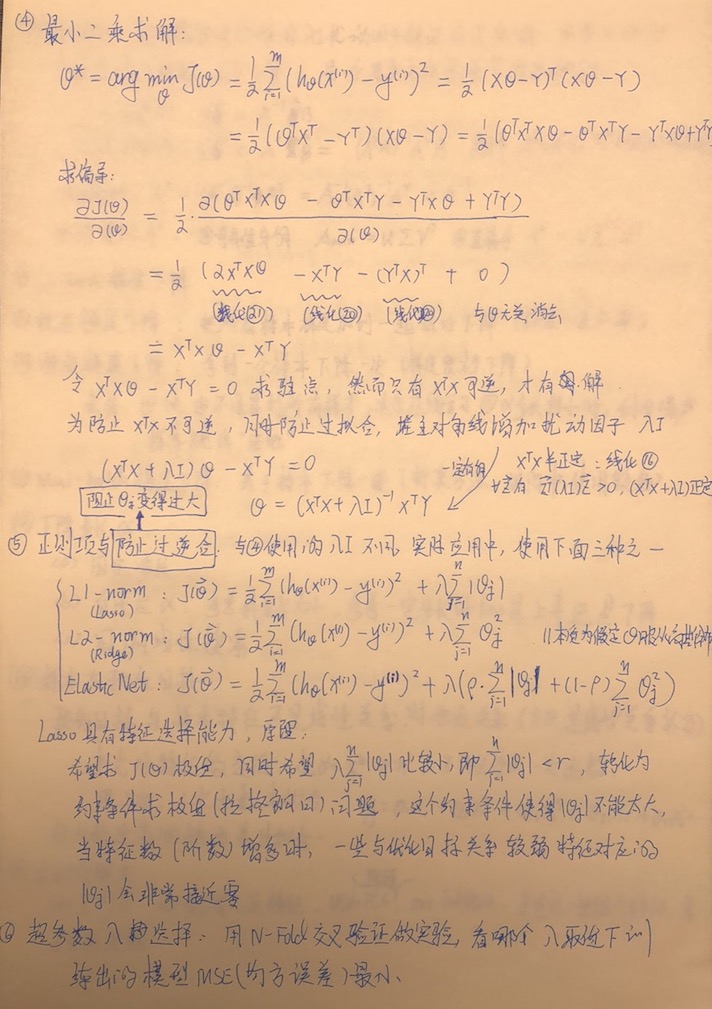 ④ 最小二乘求解:
θ* = arg min_θ J(θ) = 1/2 Σ_{i=1}^{m} (h_θ(x^(i)) - y^(i))² = 1/2 (Xθ-Y)ᵀ(Xθ-Y)
= 1/2 (θᵀXᵀ - Yᵀ)(Xθ - Y) = 1/2 (θᵀXᵀXθ - θᵀXᵀY - YᵀXθ + YᵀY
求偏导:
∂J(θ)/∂(θ) = 1/2 · ∂(θᵀXᵀXθ - θᵀXᵀY - YᵀXθ + YᵀY)/∂(θ)
= 1/2 (2XᵀXθ - XᵀY - (YᵀX)ᵀ + 0)
(线代㉑) (线代⑳) (线代⑳) 与θ无关消去
= XᵀXθ - XᵀY
令 XᵀXθ - XᵀY = 0 求驻点, 然而只有 XᵀX 可逆, 才有解.
为防止 XᵀX 不可逆, 同时防止过拟合, 在主对角线增加扰动因子 λI
(XᵀX + λI)θ - XᵀY = 0 一定有解 XᵀX半正定: 线代⑯
阻止θ变得过大 θ = (XᵀX + λI)⁻¹XᵀY (λI) > 0, (XᵀX+λI)正定
⑤ 正则项与防止过拟合: 与④使用的λI 不同, 实际应用中, 使用下面三种之一
L1-norm (Lasso) : J(θ⃗) = 1/2 Σ_{i=1}^{m} (h_θ(x^(i)) - y^(i))² + λ Σ_{j=1}^{n} |θj|
L2-norm (Ridge) : J(θ⃗) = 1/2 Σ_{i=1}^{m} (h_θ(x^(i)) - y^(i))² + λ Σ_{j=1}^{n} θj² //本质为假定θ服从高斯分布
Elastic Net : J(θ⃗) = 1/2 Σ_{i=1}^{m} (h_θ(x^(i)) - y^(i))² + λ(ρ·Σ_{j=1}^{n} |θj| + (1-ρ) Σ_{j=1}^{n} θj²)
Lasso 具有特征选择能力, 原理:
希望求 J(θ) 极值, 同时希望 λ Σ_{j=1}^{n} |θj| 比较小, 即 Σ_{j=1}^{n} |θj| < r, 转化为
约束条件求极值(拉格朗日)问题, 这个约束条件使得|θj|不能太大,
当特征数(阶数)增多时, 一些与优化目标关系较弱特征对应的
|θj| 会非常接近零
⑥ 超参数 λ 的选择: 用 N-Fold 交叉验证做实验, 看哪个 λ 取值下训
练出的模型 MSE(均方误差)最小.